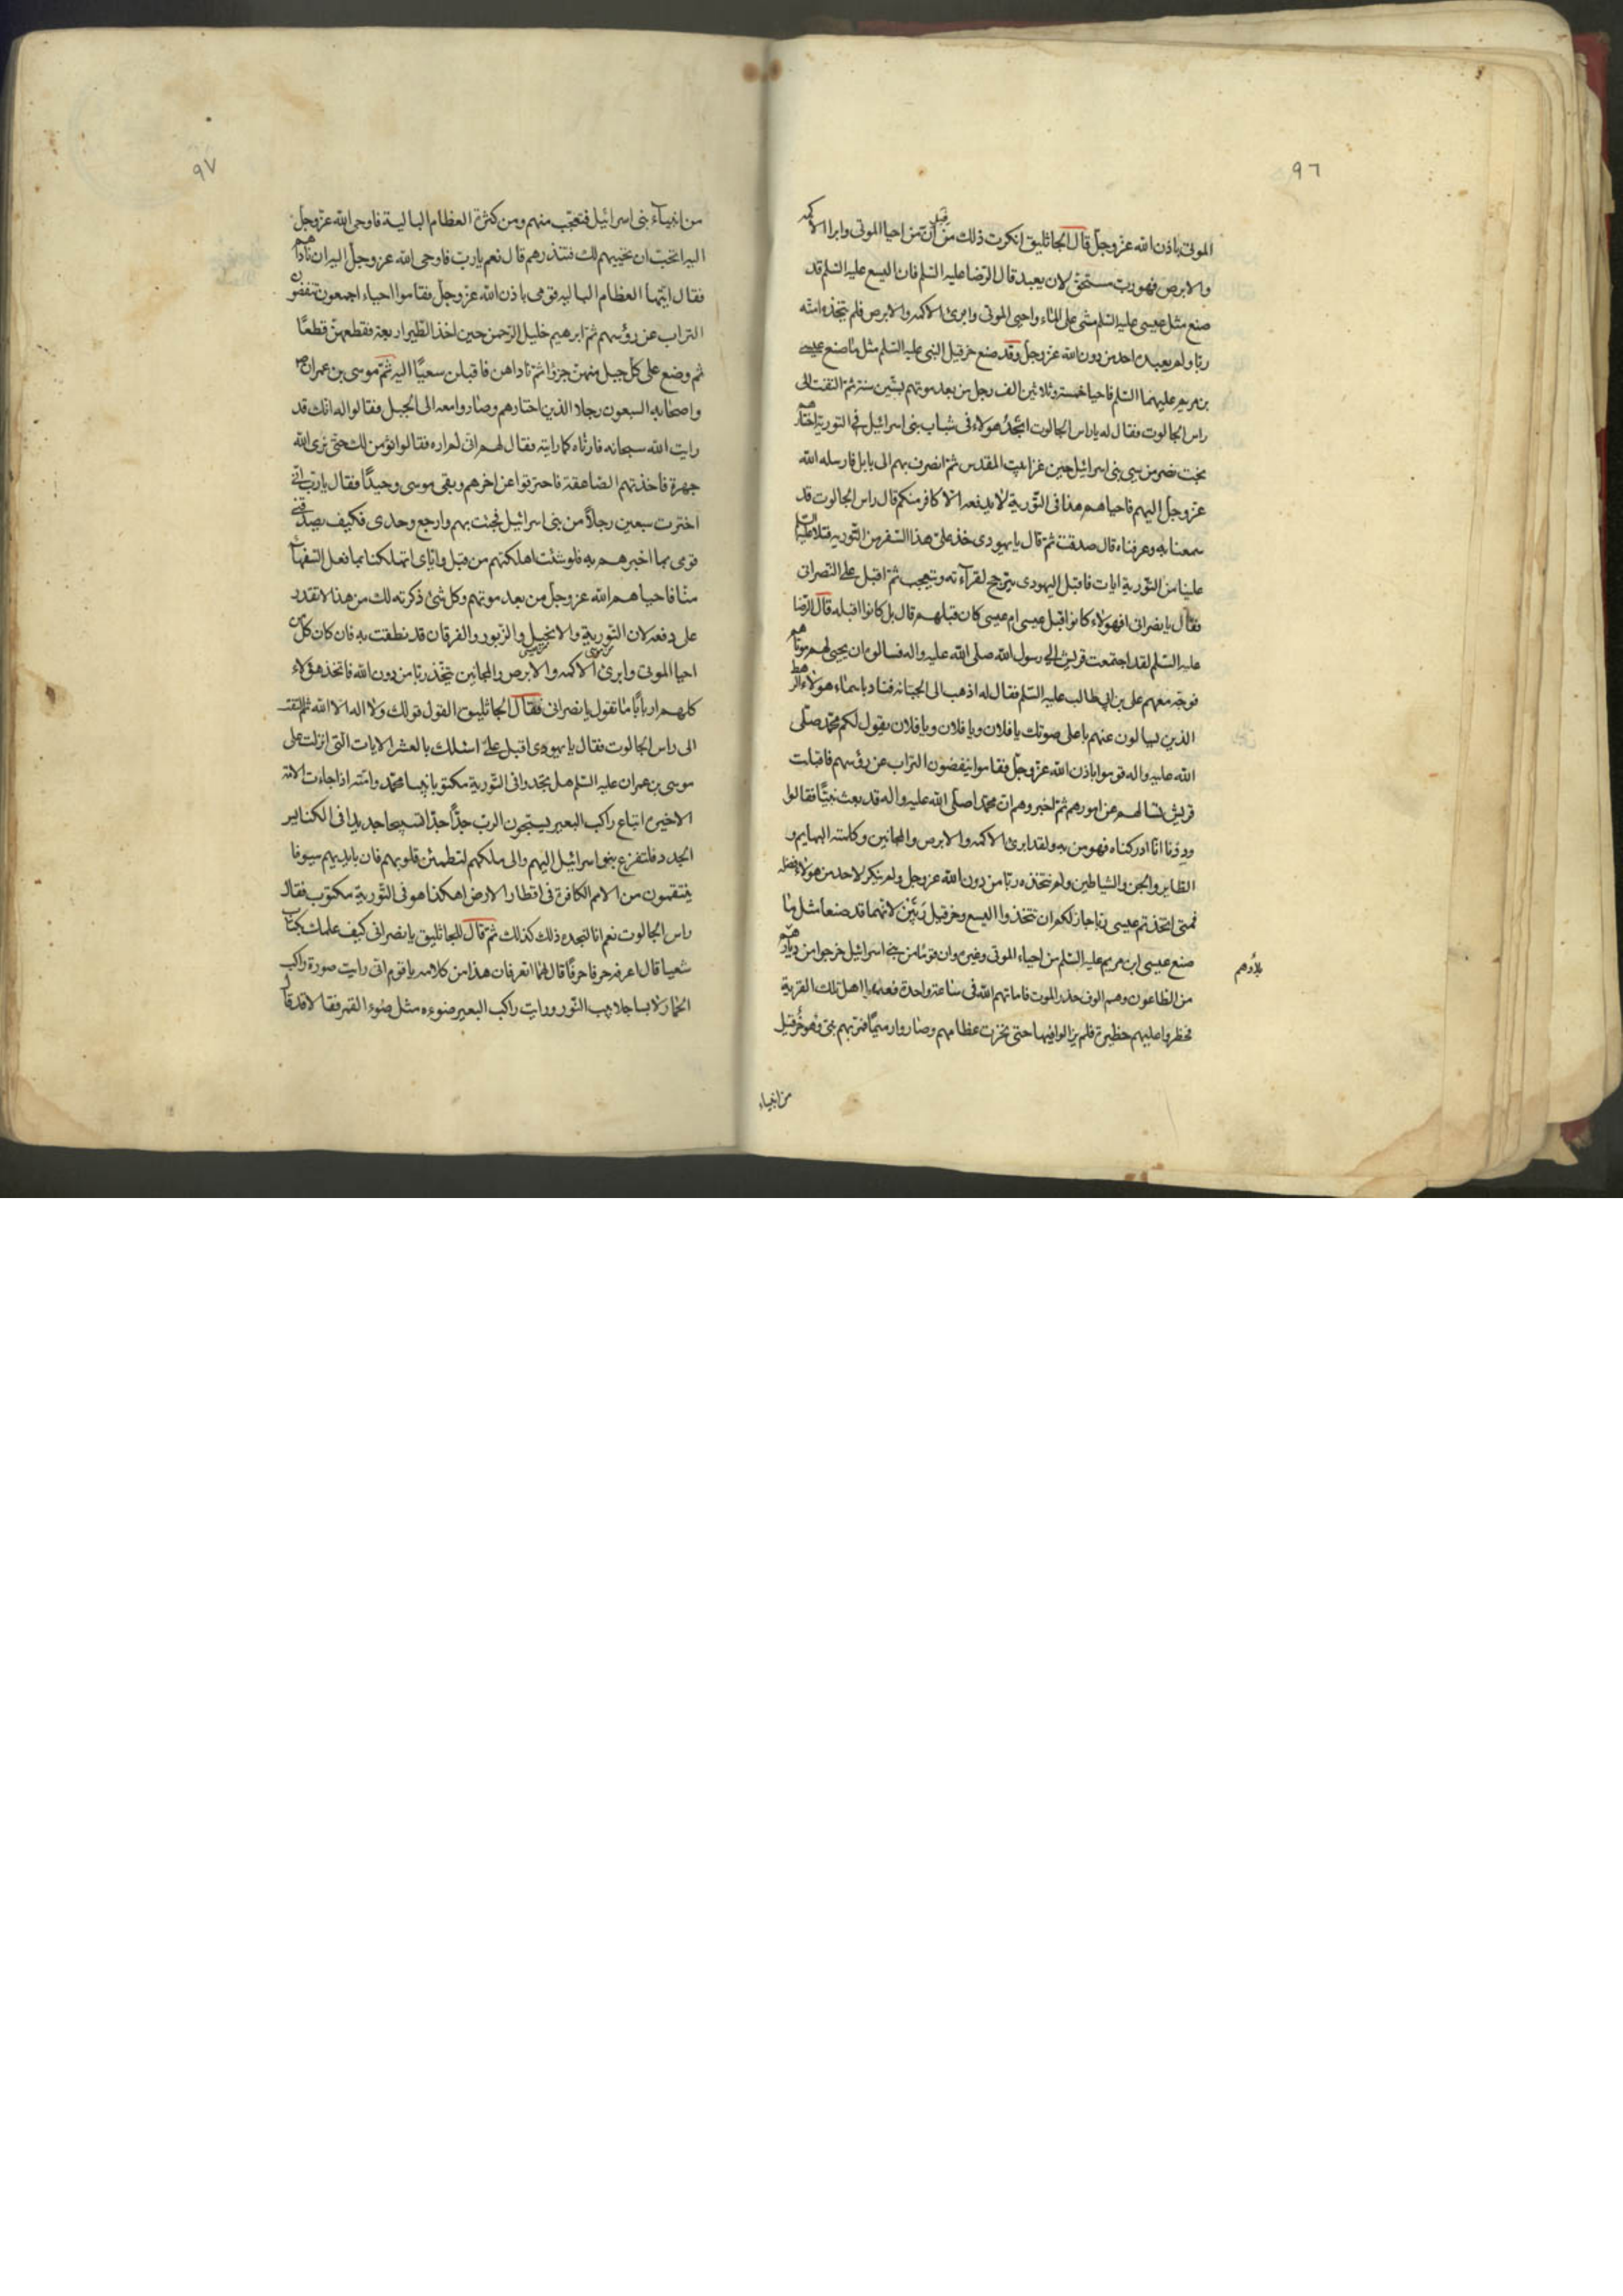 ٩٦
الموتى باذن الله عزّ وجلّ قال الجاثليق انكرت ذلك من قبل ان من احيا الموتى وابرا الاكمه
والابرص فهو ربّ مستحقّ لان يعبد قال الرضا عليه السّلم فان اليسع عليه السّلم قد
صنع مثل عيسى عليه السّلم مشى على الماء واحيى الموتى وابرئ الاكمه والابرص فلم يتّخذه امّته
ربّا ولم يعبده احد من دون الله عزّ وجلّ وقد صنع حزقيل النبى عليه السّلم مثل ما صنع عيسى
بن مريم عليهما السّلم فاحيا خمسة وثلاثين الف رجل من بعد موتهم بستّين سنة ثمّ التفت الى
راس الجالوت فقال له ياراس الجالوت اتجد هولاء فى شباب بنى اسرائيل فى التورية اختارهم
بخت نصر من سبى بنى اسرائيل حين غزا بيت المقدس ثمّ انصرف بهم الى بابل فارسله الله
عزّ وجلّ اليهم فاحياهم هذا فى التّورية لا يدفعه الّا كافر منكم قال راس الجالوت قد
سمعنا به وعرفناه قال صدقت ثمّ قال يا يهودى خذ علىّ هذا السّفر من التّورية فتلا عليه السلم
علينا من التّورية ايات فاقبل اليهودى يترجح لقرآءته ويتعجب ثمّ اقبل على النصرانى
فقال يا نصرانى افهولاء كانوا قبل عيسى ام عيسى كان قبلهم قال بل كانوا قبله قال الرّضا
عليه السّلم لقد اجتمعت قريش الى رسول الله صلى الله عليه واله فسالوه ان يحيى لهم موتاهم
فوجّه معهم على بن ابى طالب عليه السّلم فقال له اذهب الى الجبّانة فناد باسماء هولاء الرهط
الذين يسالون عنهم باعلى صوتك يا فلان ويا فلان ويا فلان يقول لكم محمّد صلّى
الله عليه واله قوموا باذن الله عزّ وجلّ فقاموا ينفضون التراب عن رؤسهم فاقبلت
قريش تسالهم عن امورهم ثمّ اخبروهم انّ محمّدا صلّى الله عليه واله قد بعث نبيّا فقالوا
وددنا انّا ادركناه فهومن به ولقد ابرئ الاكمه والابرص والمجانين وكلمته البهايم و
الطاير والجن والشياطين ولم نتخذه ربّا من دون الله عزّ وجل ولم ينكر لاحد من هولاء فضله
فمتى اتخذتم عيسى ربّا جاز لكم ان تتخذوا اليسع وحزقيل ربّين لانهما قد صنعا مثل ما
صنع عيسى ابن مريم عليه السّلم من احياء الموتى وغيره وان قومًا من بنى اسرائيل خرجوا من ديارهم
بلادهم
من الطاعون وهم الوف حذر الموت فاماتهم الله فى ساعة واحدة فعمد اهل تلك القرية
فحظروا عليهم حظيرة فلم يزالوا فيها حتى نخرت عظامهم وصاروا رميمًا فمرّ بهم نبىّ وهو حزقيل
من انبياء
٩٧
من انبيآء بنى اسرائيل فتعجّب منهم ومن كثرة العظام البالية فاوحى الله عزّ وجلّ
اليه اتحبّ ان نحييهم لك فتنذرهم قال نعم يا ربّ فاوحى الله عزّ وجلّ اليه ان نادهم
فقال ايّتها العظام الباليه قومى باذن الله عزّ وجلّ فقاموا احياء اجمعون ينفضون
التراب عن رؤسهم ثمّ ابرهيم خليل الرّحمن حين اخذ الطّير اربعة فقطعهنّ قطعًا
ثم وضع على كلّ جبل منهنّ جزؤا ثمّ ناداهن فاقبلن سعيًا اليه ثمّ موسى بن عمران
واصحابه السبعون رجلا الذين اختارهم وصاروا معه الى الجبل فقالوا له انّك قد
رايت الله سبحانه فارناه كما رايته فقال لهم انى لم اره فقالوا لن نؤمن لك حتى نرى الله
جهرة فاخذتهم الصّاعقة فاحترقوا عن اخرهم وبقى موسى وحيدًا فقال يا ربّ انّى
اخترت سبعين رجلاً من بنى اسرائيل فجئت بهم وارجع وحدى فكيف يصدّقنى
قومى بما اخبرهم به فلو شئت اهلكتهم من قبل وايّاى اتهلكنا بما فعل السّفهاء
منّا فاحياهم الله عزّ وجلّ من بعد موتهم وكل شئ ذكرته لك من هذا لا تقدر
على دفعه لان التّورية والانجيل والزّبور والفرقان قد نطقت به فان كان كلّ من
احيا الموتى وابرئ الاكمه والابرص والمجانين يتّخذ ربّا من دون الله فاتخذ هؤلاء
كلهم اربابًا ما تقول يا نصرانى فقال الجاثليق القول قولك ولا اله الا الله ثمّ التفت
الى راس الجالوت فقال يا يهودى اقبل علىّ اسئلك بالعشر الايات الّتى انزلت على
موسى بن عمران عليه السّلم هل تجد فى التّورية مكتوبا نبأ محمّد وامّته اذا جاءت الامّة
الاخيرة اتباع راكب البعير يسبّحون الربّ جدًّا جدًّا تسبيحا جديدا فى الكنايس
الجدد فلتفزع بنو اسرائيل اليهم والى ملكهم لتطمئن قلوبهم فان بايديهم سيوفا
ينتقمون من الامم الكافرة فى اقطار الارض اهكذا هو فى التّورية مكتوب فقال
راس الجالوت نعم انا لنجده ذلك كذلك ثمّ قال للجاثليق يا نصرانى كيف علمك بكتاب
شعيا قال اعرفه حرفا حرفًا قال لهما اتعرفان هذا من كلامه يا قوم انّى رايت صورة راكب
الحمار لابسا جلابيب النّور ورايت راكب البعير ضوءه مثل ضوء القمر فقالا قد قال